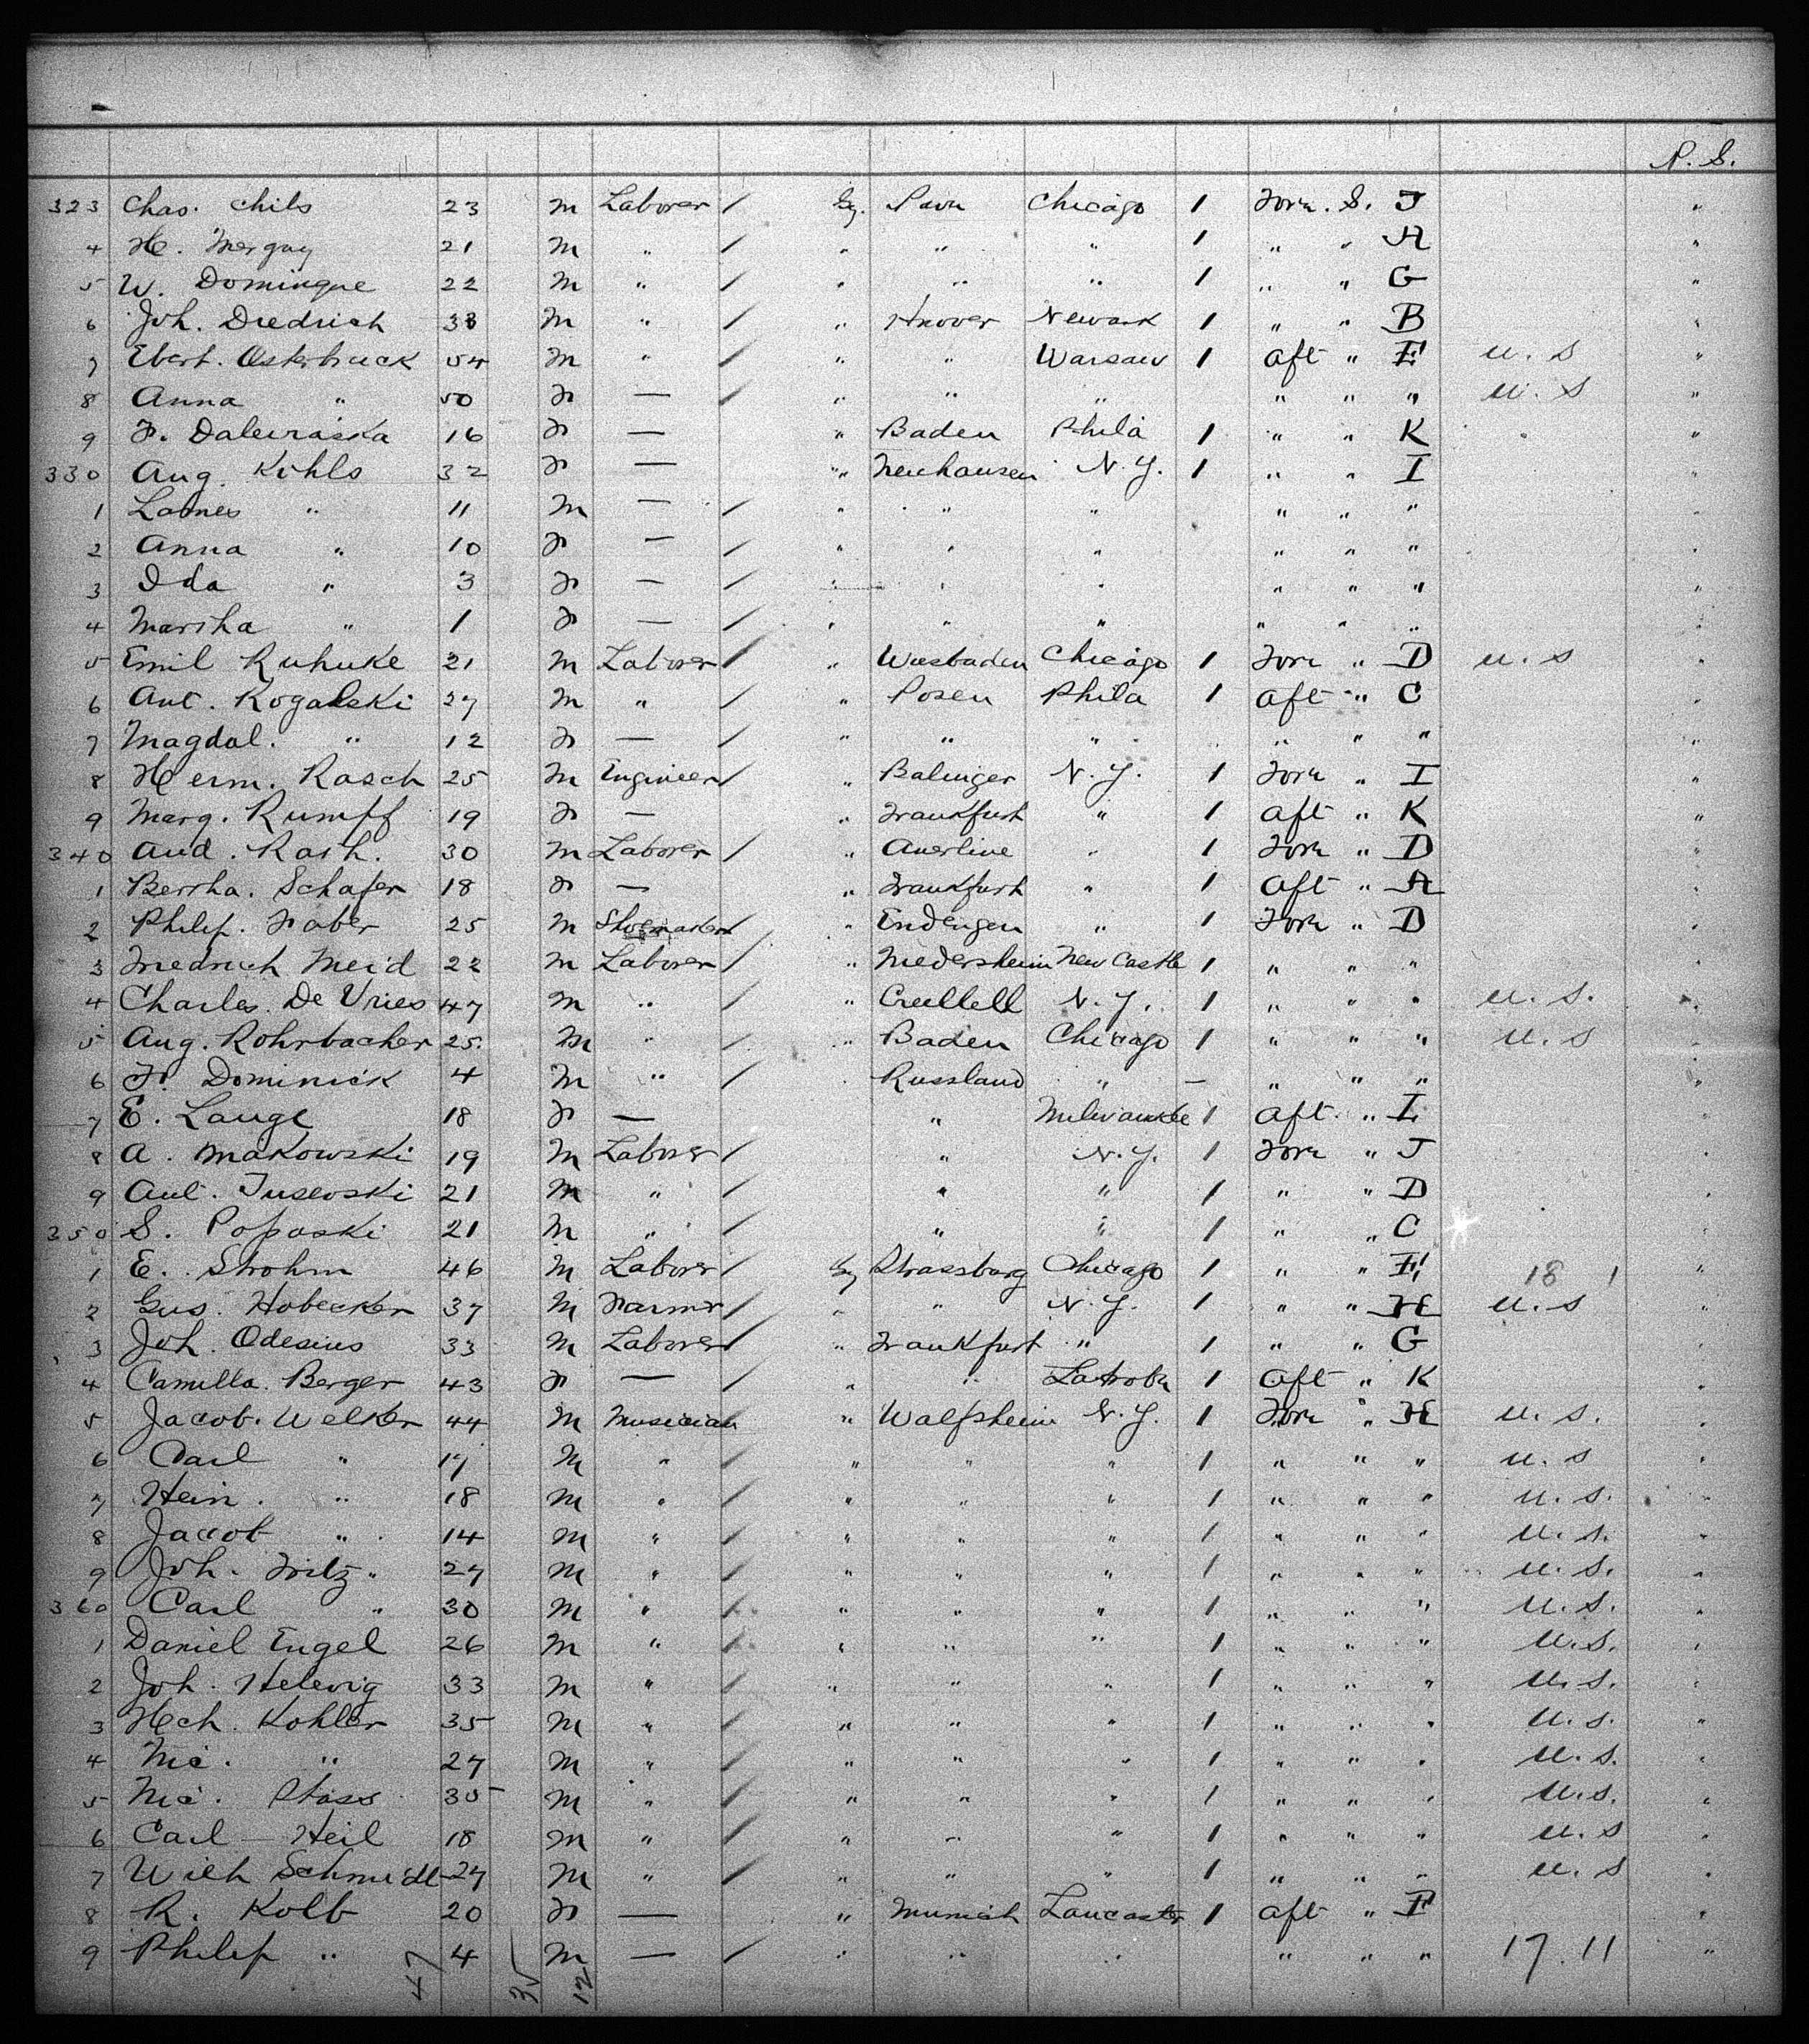 P. S.
323 Chas. Chils 23 M Laborer / Gy. Chicago 1 Forw. S. J "
4 H. 21 M " / " " " 1 " " A "
5 W. Domingue 22 M " / " " " 1 " " G "
6 Joh. Diedrich 38 M " / " Hnover Newark 1 " " B "
7 Ebert. Osterbuck 54 M " / " " Warsaw 1 aft " E U. S "
8 Anna " 50 F — / " " " " " " U. S "
9 F. 16 F — " Baden Phila 1 " " K "
330 Aug. Kihls 32 F — " Neuhausen N. Y. 1 " " I "
1 " 11 M — / " " " " " " "
2 Anna " 10 F — / " " " " " " "
3 Ida " 3 F — / " " " " " " "
4 Martha " 1 F — / " " " " " " "
5 Emil Ruhuke 21 M Laborer / " Wiesbaden Chicago 1 Forw " D U. S "
6 Ant. Rogalski 27 M " / " Posen Phila 1 aft " C "
7 Magdal. " 12 F — / " " " " " " "
8 Herm. Rasch 25 M Engineer / " Balinger N. Y. 1 Forw " I "
9 Marg. Rumpf 19 F — " Frankfurt " 1 aft " K "
340 And. Rath. 30 M Laborer / " Anerline " 1 Forw " D "
1 Bertha. Schafer 18 F — " Frankfurt " 1 aft " A "
2 Philip. Faber 25 M Shoemaker / " Endengen " 1 Forw " D "
3 Friedrich Meid 22 M Laborer / " Niedersheim New Castle 1 " " " "
4 Charles. De Vries 47 M " / " N. Y. 1 " " " U. S. "
5 Aug. Rohrbacher 25. M " / " Baden Chicago 1 " " " U. S "
6 F. Dominick 4 M " / " Russland " — " " " "
7 E. Lange 18 F — " Milwaukee 1 aft " I "
8 A. Makowski 19 M Laborer / " N. Y. 1 Forw " J "
9 Ant. Jusevski 21 M " / " " 1 " " D "
350 S. Poposki 21 M " / " " 1 " " C "
1 E. Strohm 46 M Laborer / Gy Strassburg Chicago 1 " " E 18 1 "
2 Gus. Hobecker 37 M Farmer / " " N. Y. 1 " " H U. S "
3 Joh. Odesius 33 M Laborer / " Frankfurt " 1 " " G "
4 Camilla. Berger 43 F — / " " Latrobe 1 aft " K "
5 Jacob. Welker 44 M Musician " Walfsheim N. Y. 1 Forw " H U. S. "
6 Carl " 17 M " / " " " 1 " " " U. S "
7 Hein. " 18 M " / " " " 1 " " " U. S. "
8 Jacob " 14 M " / " " " 1 " " " U. S. "
9 Joh. Fritz " 27 M " / " " " 1 " " " U. S. "
360 Carl " 30 M " / " " " 1 " " " U. S. "
1 Daniel Engel 26 M " / " " " 1 " " " U. S. "
2 Joh. Helewig 33 M " / " " " 1 " " " U. S. "
3 Hch. Kohler 35 M " / " " " 1 " " " U. S. "
4 Nic. " 27 M " / " " " 1 " " " U. S. "
5 Nic. Stass 35 M " / " " " 1 " " " U. S. "
6 Carl — Heil 18 M " / " " " 1 " " " U. S "
7 Wilh Schmidt 27 M " / " " " 1 " " " U. S "
8 R. Kolb 20 F — " Munich Lancaster 1 aft " F "
9 Philip " 4 M — / " " " " " " 17. 11 "
47 35 12